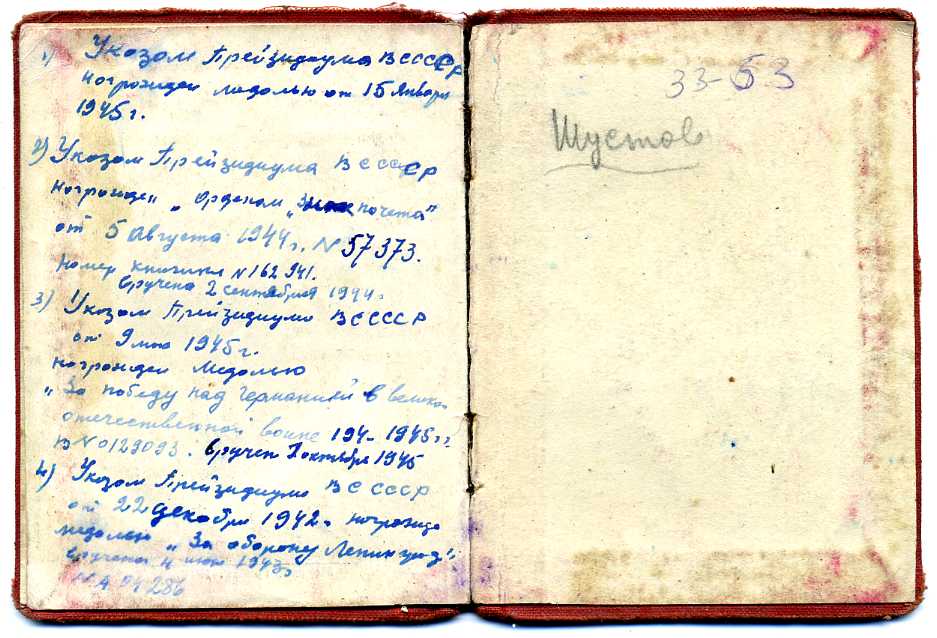 1) Указом Прейзидиума ВСССР
награжден медалью от 15 Января
1945 г.
2) Указом Прейзидиума ВСССР
награжден „Орденом „Знак почета"
от 5 Августа 1944 г. N 57373.
Номер книжки N 162941.
Вручена 2 сентября 1944 г
3) Указом Прейзидиума ВСССР
от 9 мая 1945 г.
награжден Медалью
„За победу над Германией в велико
отечественной воине 194- 1945 гг
N 0129093. Вручен октября 1945
4) Указом Прейзидиума ВСССР
от 22 декабря 1942 г награжде
медалью „За оборону Ленинград"
Вручена 4 июня 1943 г
N А 04286
33-53
Шустов